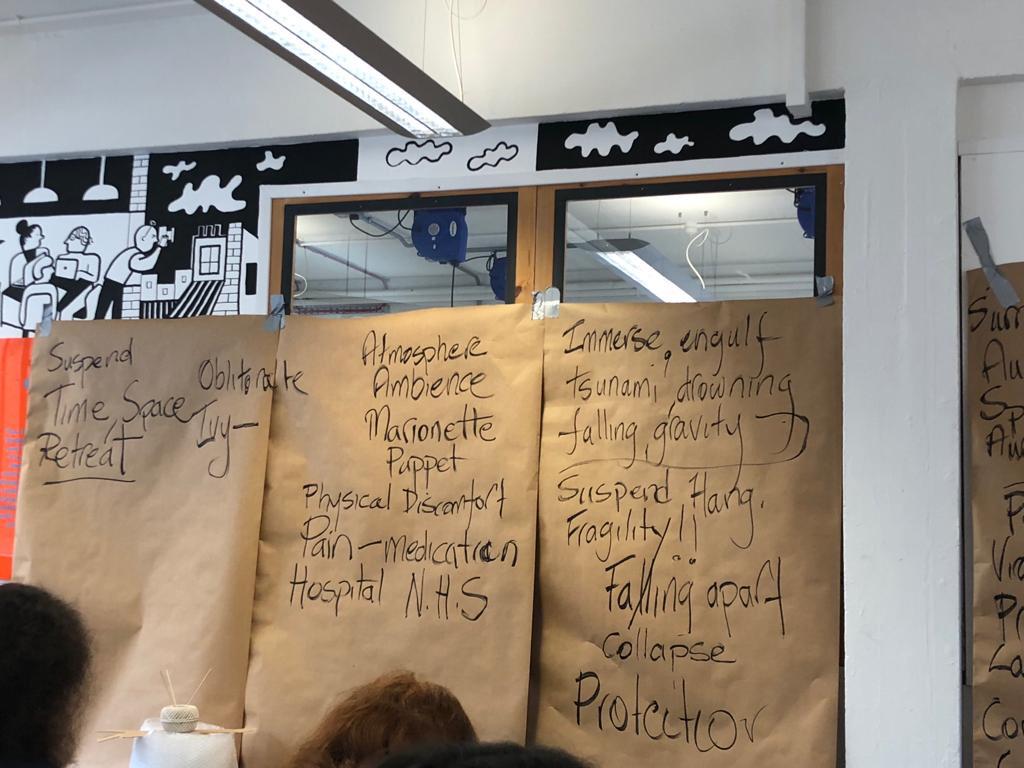 Suspend
Time, Space
Retreat
Obliterate
Ivy—
Atmosphere
Ambience
Marionette
Puppet
Physical Discomfort
Pain - medication
Hospital N.H.S
Immerse, engulf
tsunami, drowning
falling, gravity
Suspend Hang.
Fragility!!
Falling apart
collapse
Protection